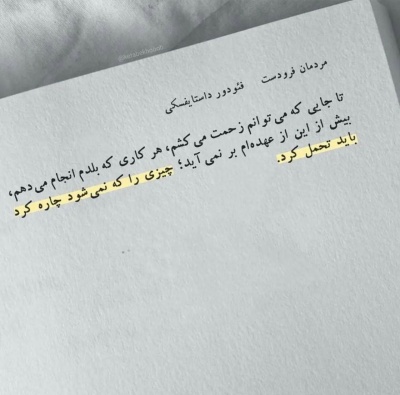 مردمان فرودست    فئودور داستایفسکی
تا جایی که می‌توانم زحمت می‌کشم، هر کاری که بلدم انجام می‌دهم،
بیش از این از عهده‌ام بر نمی‌آید؛ چیزی را که نمی‌شود چاره کرد
باید تحمل کرد.